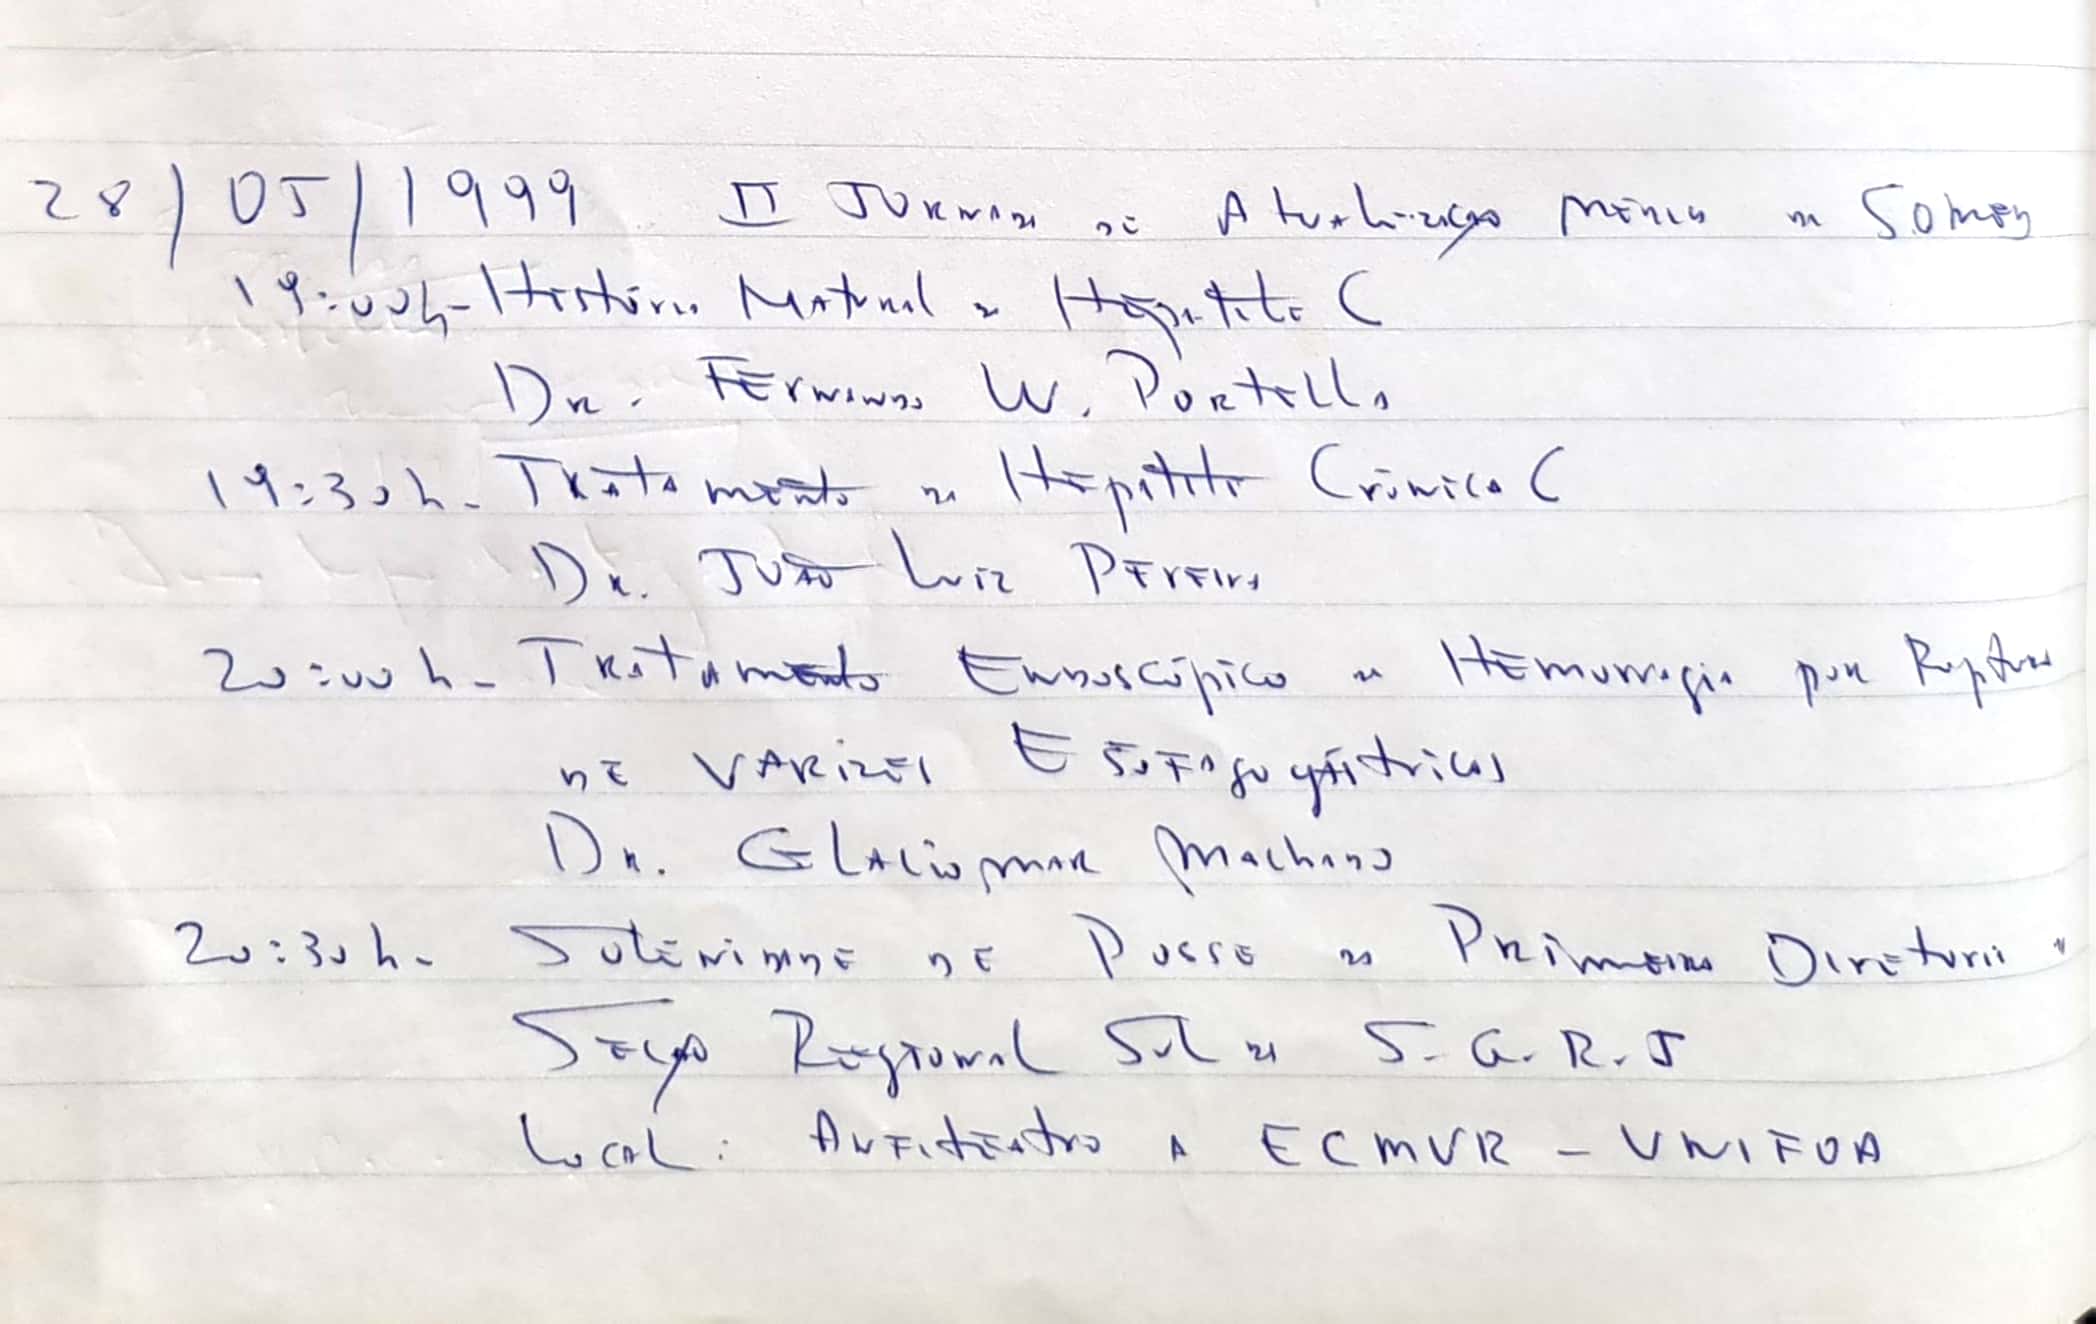 28/05/1999 II Jornada de Atualização Médica da Somed
19:00h - História Natural da Hepatite C
Dr. Fernando W. Portella
19:30h - Tratamento da Hepatite Crônica C
Dr. João Luiz Pereira
20:00h - Tratamento Endoscópico da Hemorragia por Ruptura
de Varizes Esofagogástricas
Dr. Glaciomar Machado
20:30h - Solenidade de Posse da Primeira Diretoria da
Seção Regional Sul da S.G.R.J
Local: Anfiteatro da ECMVR - UNIFOA